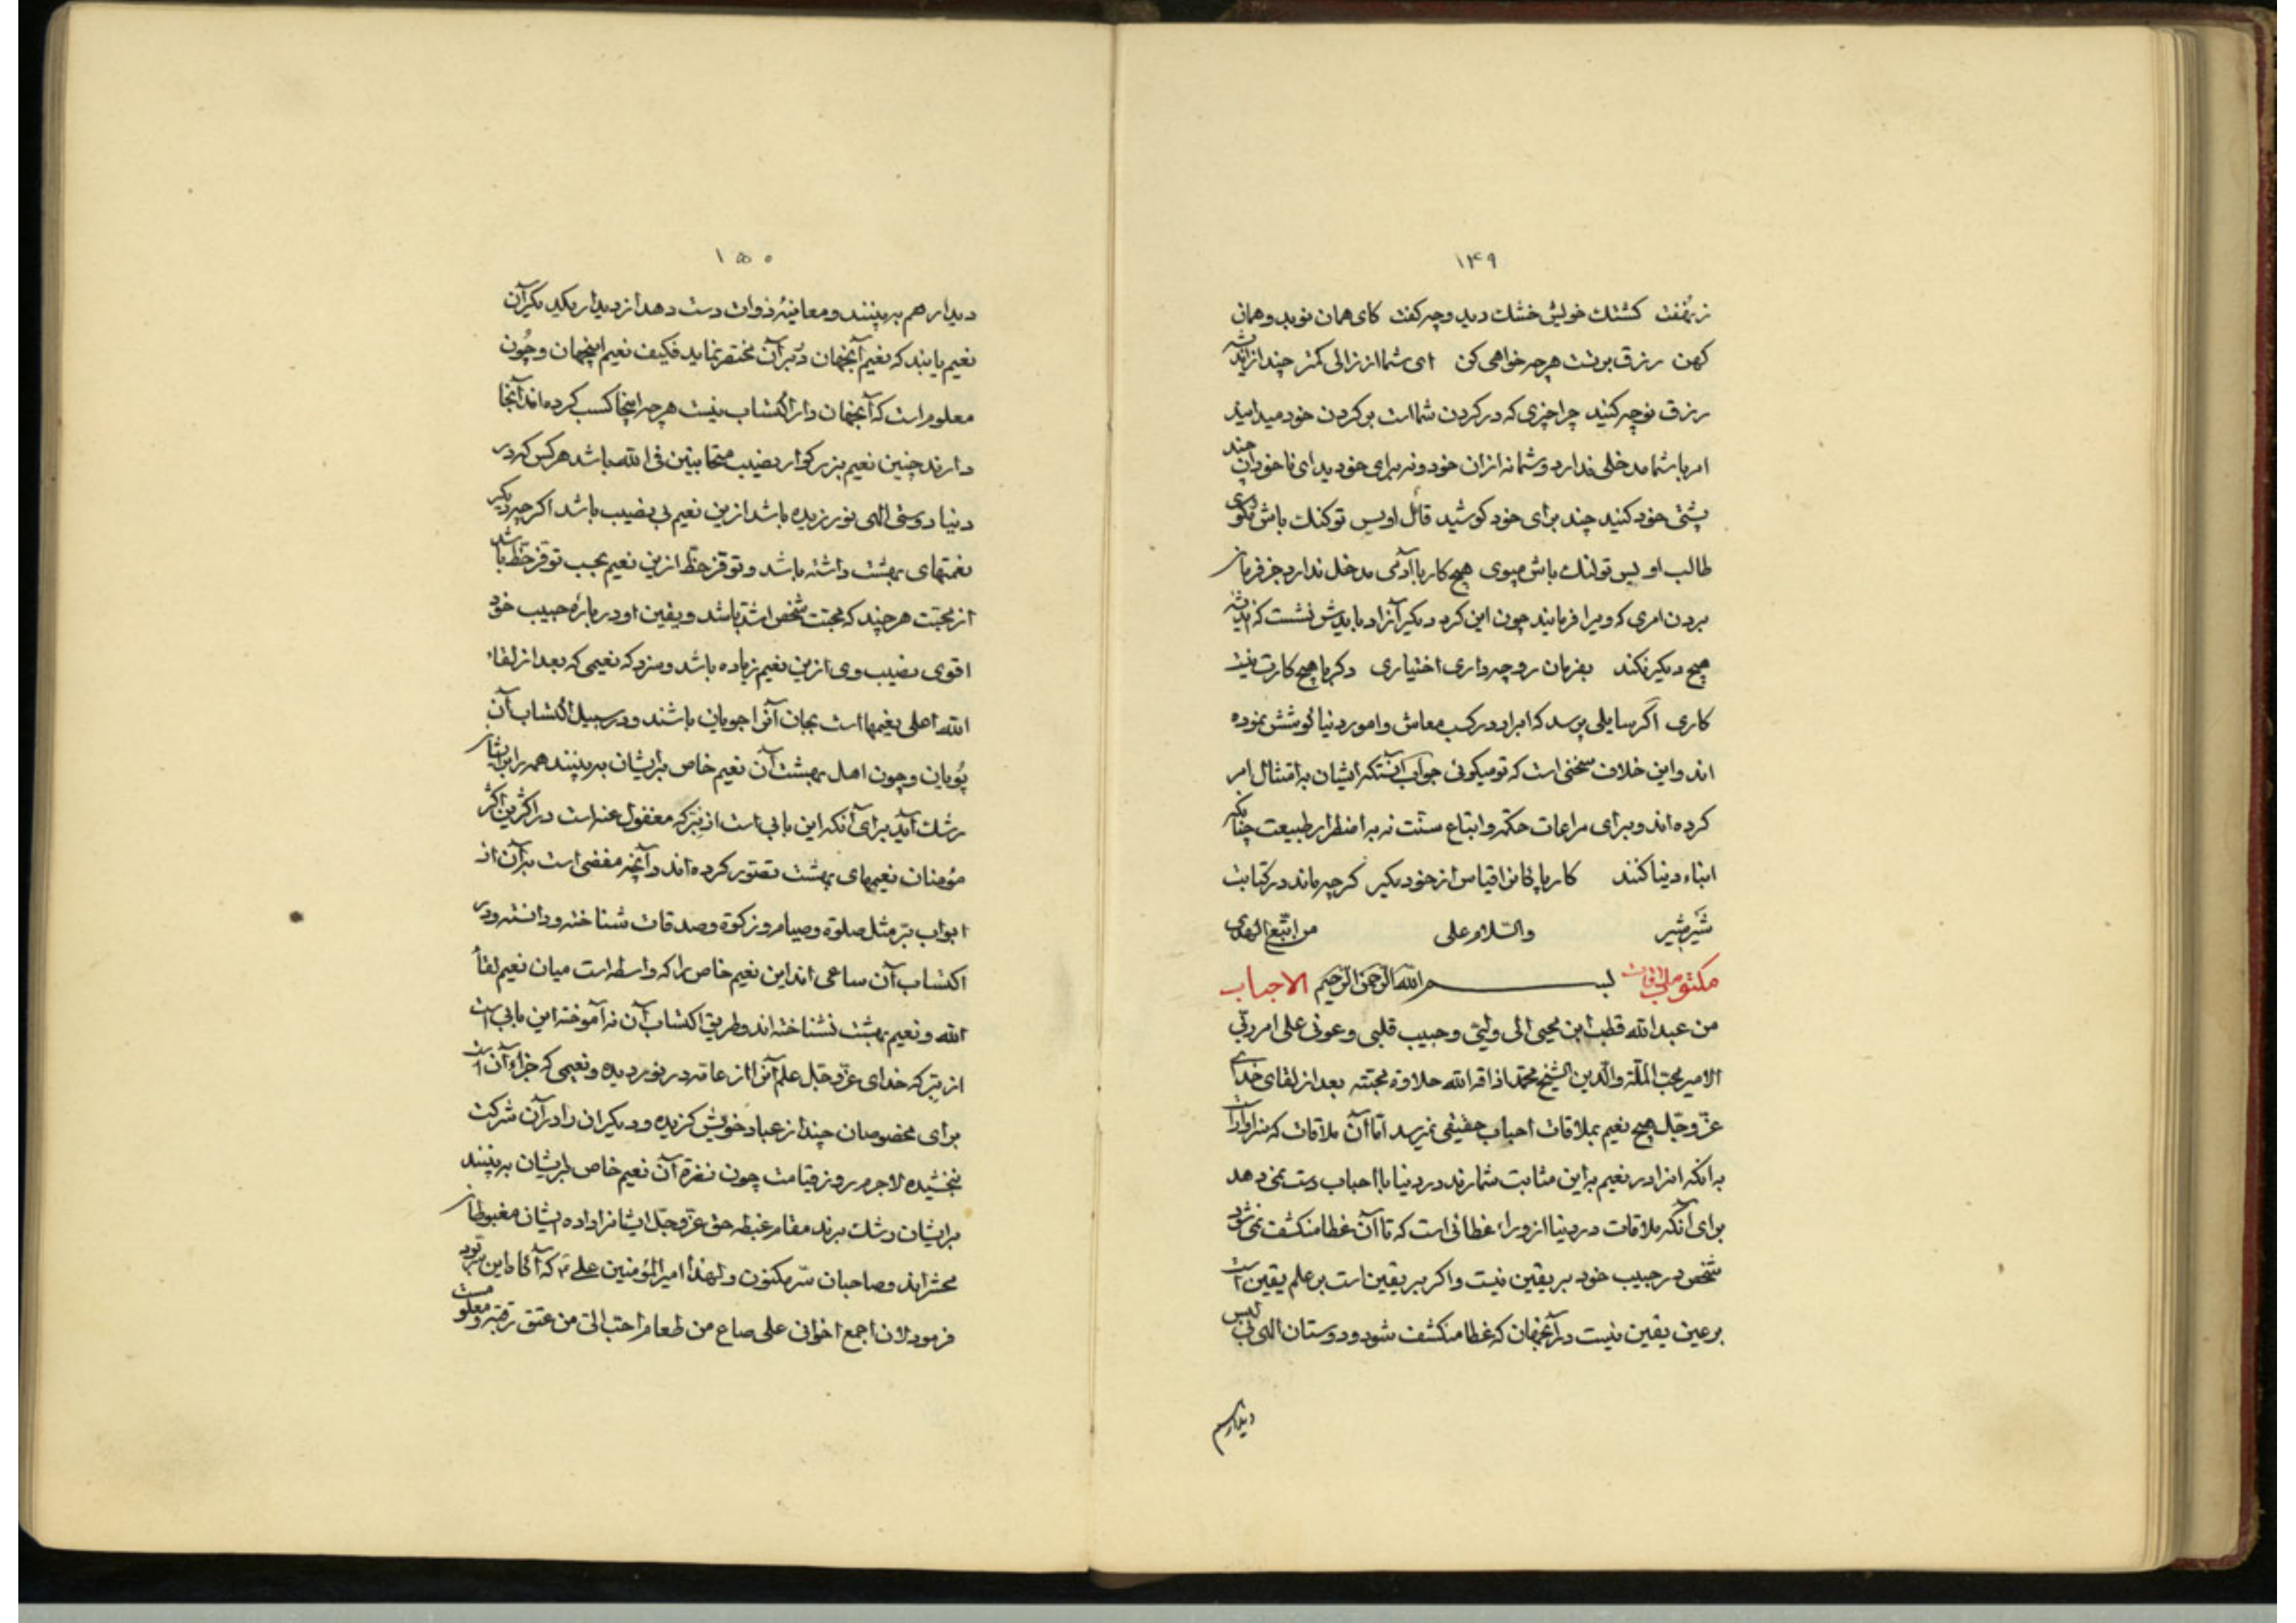 ۱۴۹
زنهفت کشتک خویش خشک دید و چه کفت کای همان نوید و همان
کهن رزق برتست هرچه خواهی کن ای شما از زالی کمتر چند از اندیشه
رزق نوچه کنید چرا چیزی که در کردن شماست بر کردن خود میدانید
امر با شما مدخلی ندارد و شما نه از ان خود و نه برای خود بدای ناخودان چند
پشتی خود کنید چند برای خود کوشید قائل اویس توکنک باش مکوی
طالب اویس تولنک باش مپوی هیچ کار با آدمی مدخل ندارد جز فرمان
بردن امری که ویرا فرمایند چون این کرد دیکر آزاد بایدش نشست که اندیشه
هیچ دیکر نکند بفرمان رو چه داری اختیاری دکر با هیچ کارت نیست
کاری اگر سایلی پرسد که ابرار در کسب معاش و امور دنیا کوشش نموده
اند و این خلاف سخنی است که تو میکوئی جواب آنستکه ایشان به امتثال امر
کرده‌اند و برای مراعات حکمة و اتباع سنّت نه به اضطرار طبیعت چنانکه
ابناء دنیا کنند کار پاکانرا قیاس از خود مکیر کرچه ماند در کتابت
شیر شیر والسّلام علی من اتّبع الهدی
مکتوب ملاقات بسم الله الرحمن الرحیم الاحباب
من عبد الله قطب ابن محیی الی ولیّی و حبیب قلبی و عونی علی امر ربّی
الامیر محبّ الملّة والدّین الشیخ محمّد اذاقه الله حلاوة محبّته بعد از لقای خدای
عزّ و جلّ هیچ نعیم بملاقات احباب حقیقی نمیرسد امّا آن ملاقات که سزاوار است
به آنکه انرا در نعیم به این مثابت شمارند در دنیا با احباب دست نمی دهد
برای آنکه ملاقات در دنیا از وراء غطائی است که تا آن غطا منکشف نمی شود
شخص در حبیب خود بر یقین نیست و اکر بر یقین است بر علم یقین است
بر عین یقین نیست در آنجهان که غطا منکشف شود و دوستان اللهی بی لبس
دیدار هم
۱۵۰
دیدار هم به بینند و معاینهٔ ذوات دست دهد از دیدار یکدیکر آن
نعیم یابند که نعیم آنجهان در بر آن مختصر نماید فکیف نعیم اینجهان و چون
معلوم است که آنجهان دار اکتساب نیست هرچه اینجا کسب کرده‌اند آنجا
دارند چنین نعیم بزرکوار نصیب متحابّین فی الله باشد هرکس که در
دنیا دوستی اللهی نورزیده باشد ازین نعیم بی نصیب باشد اکرچه دیکر
نعمتهای بهشت داشته باشد و توفّر حظّ ازین نعیم بحسب توفّر حظّ باشد
از محبّت هرچند که محبّت شخص اشدّ باشد و یقین او در بارهٔ حبیب خود
اقوی نصیب وی ازین نعیم زیاده باشد و سزد که نعیمی که بعد از لقاء
الله اعلی نعیمها است بجان آنرا جویان باشند و در سبیل اکتساب آن
پویان و چون اهل بهشت آن نعیم خاص بر ایشان به بینند همه را بر ایشان
رشک آید برای آنکه این بابی است از برّ که مغفول عنه است در اکثر این اکثر
مؤمنان نعیمهای بهشت تصوّر کرده‌اند و آنچه مفضی است بر آن از
ابواب برّ مثل صلوة و صیام و زکوة و صدقات شناخته و دانسته و در
اکتساب آن ساعی اند این نعیم خاص را که واسطه است میان نعیم لقاء
الله و نعیم بهشت نشناخته‌اند و طریق اکتساب آن نه آموخته این بابی است
از برّ که خدای عزّ و جلّ علم آنرا از عامّه در نوردیده و نعیمی که جزاء آن است
برای مخصوصان چند از عباد خویش کزیده و دیکران را در آن شرکت
نبخشیده لاجرم روز قیامت چون نضرة آن نعیم خاص بر ایشان به بینند
بر ایشان رشک برند مقام غبطه حق عزّ و جلّ ایشانرا داده ایشان مغبوطان
محشراند و صاحبان سرّ مکنون و لهذا امیر المؤمنین علی که آکاه این سرّ بود
فرمود لان اجمع اخوانی علی صاع من طعام احبّ الیّ من عتق رقبة و معلومست